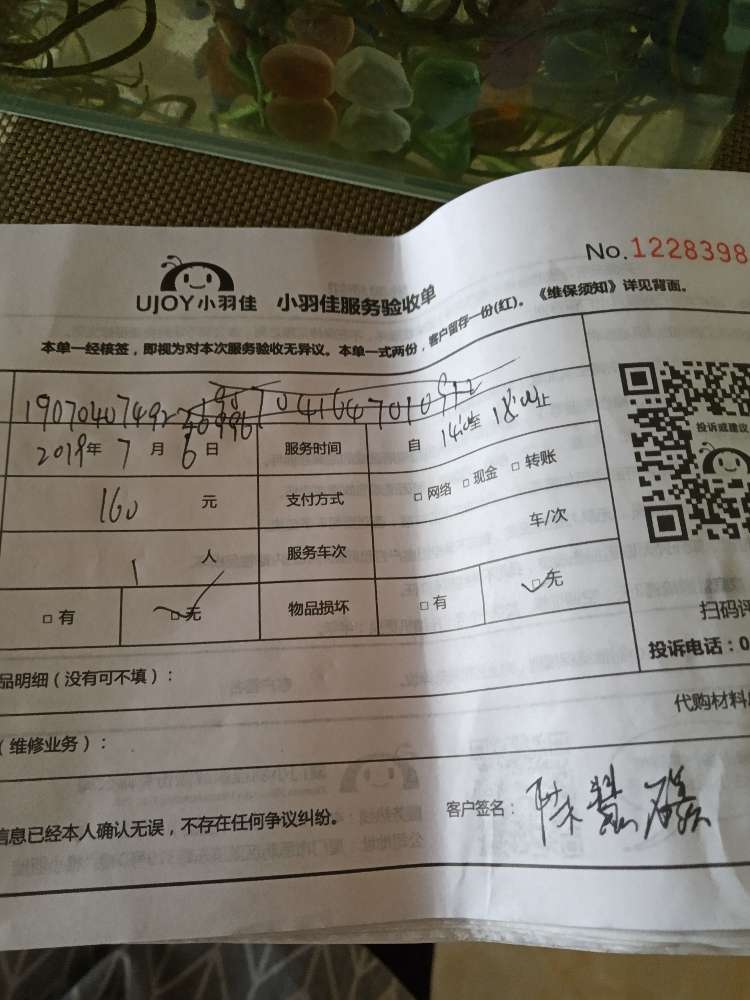 No.1228398
UJOY小羽佳 小羽佳服务验收单
本单一经核签，即视为对本次服务验收无异议。本单一式两份，客户留存一份(红)。《维保须知》详见背面。
投诉或建议
2019年 7 月 6 日 服务时间 自 14:00至 18:00止
160 元 支付方式 □网络 □现金 □转账
1 人 服务车次 车/次
□有 □无 物品损坏 □有 □无
扫码评
投诉电话：0
品明细（没有可不填）：
代购材料
（维修业务）：
信息已经本人确认无误，不存在任何争议纠纷。
客户签名：